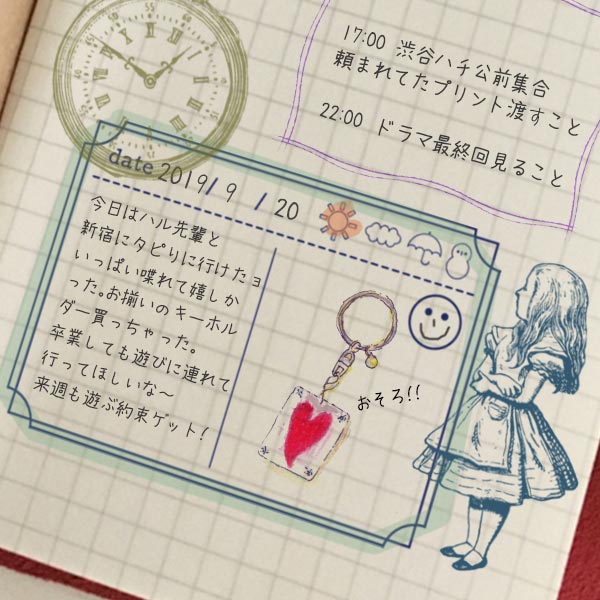 17:00 渋谷ハチ公前集合
頼まれてたプリント渡すこと
22:00 ドラマ最終回見ること
date 2019/9/20
今日はハル先輩と
新宿にタピりに行けたョ
いっぱい喋れて嬉しか
った。お揃いのキーホル
ダー買っちゃった。
卒業しても遊びに連れて
行ってほしいな～
来週も遊ぶ約束ゲット!
おそろ!!